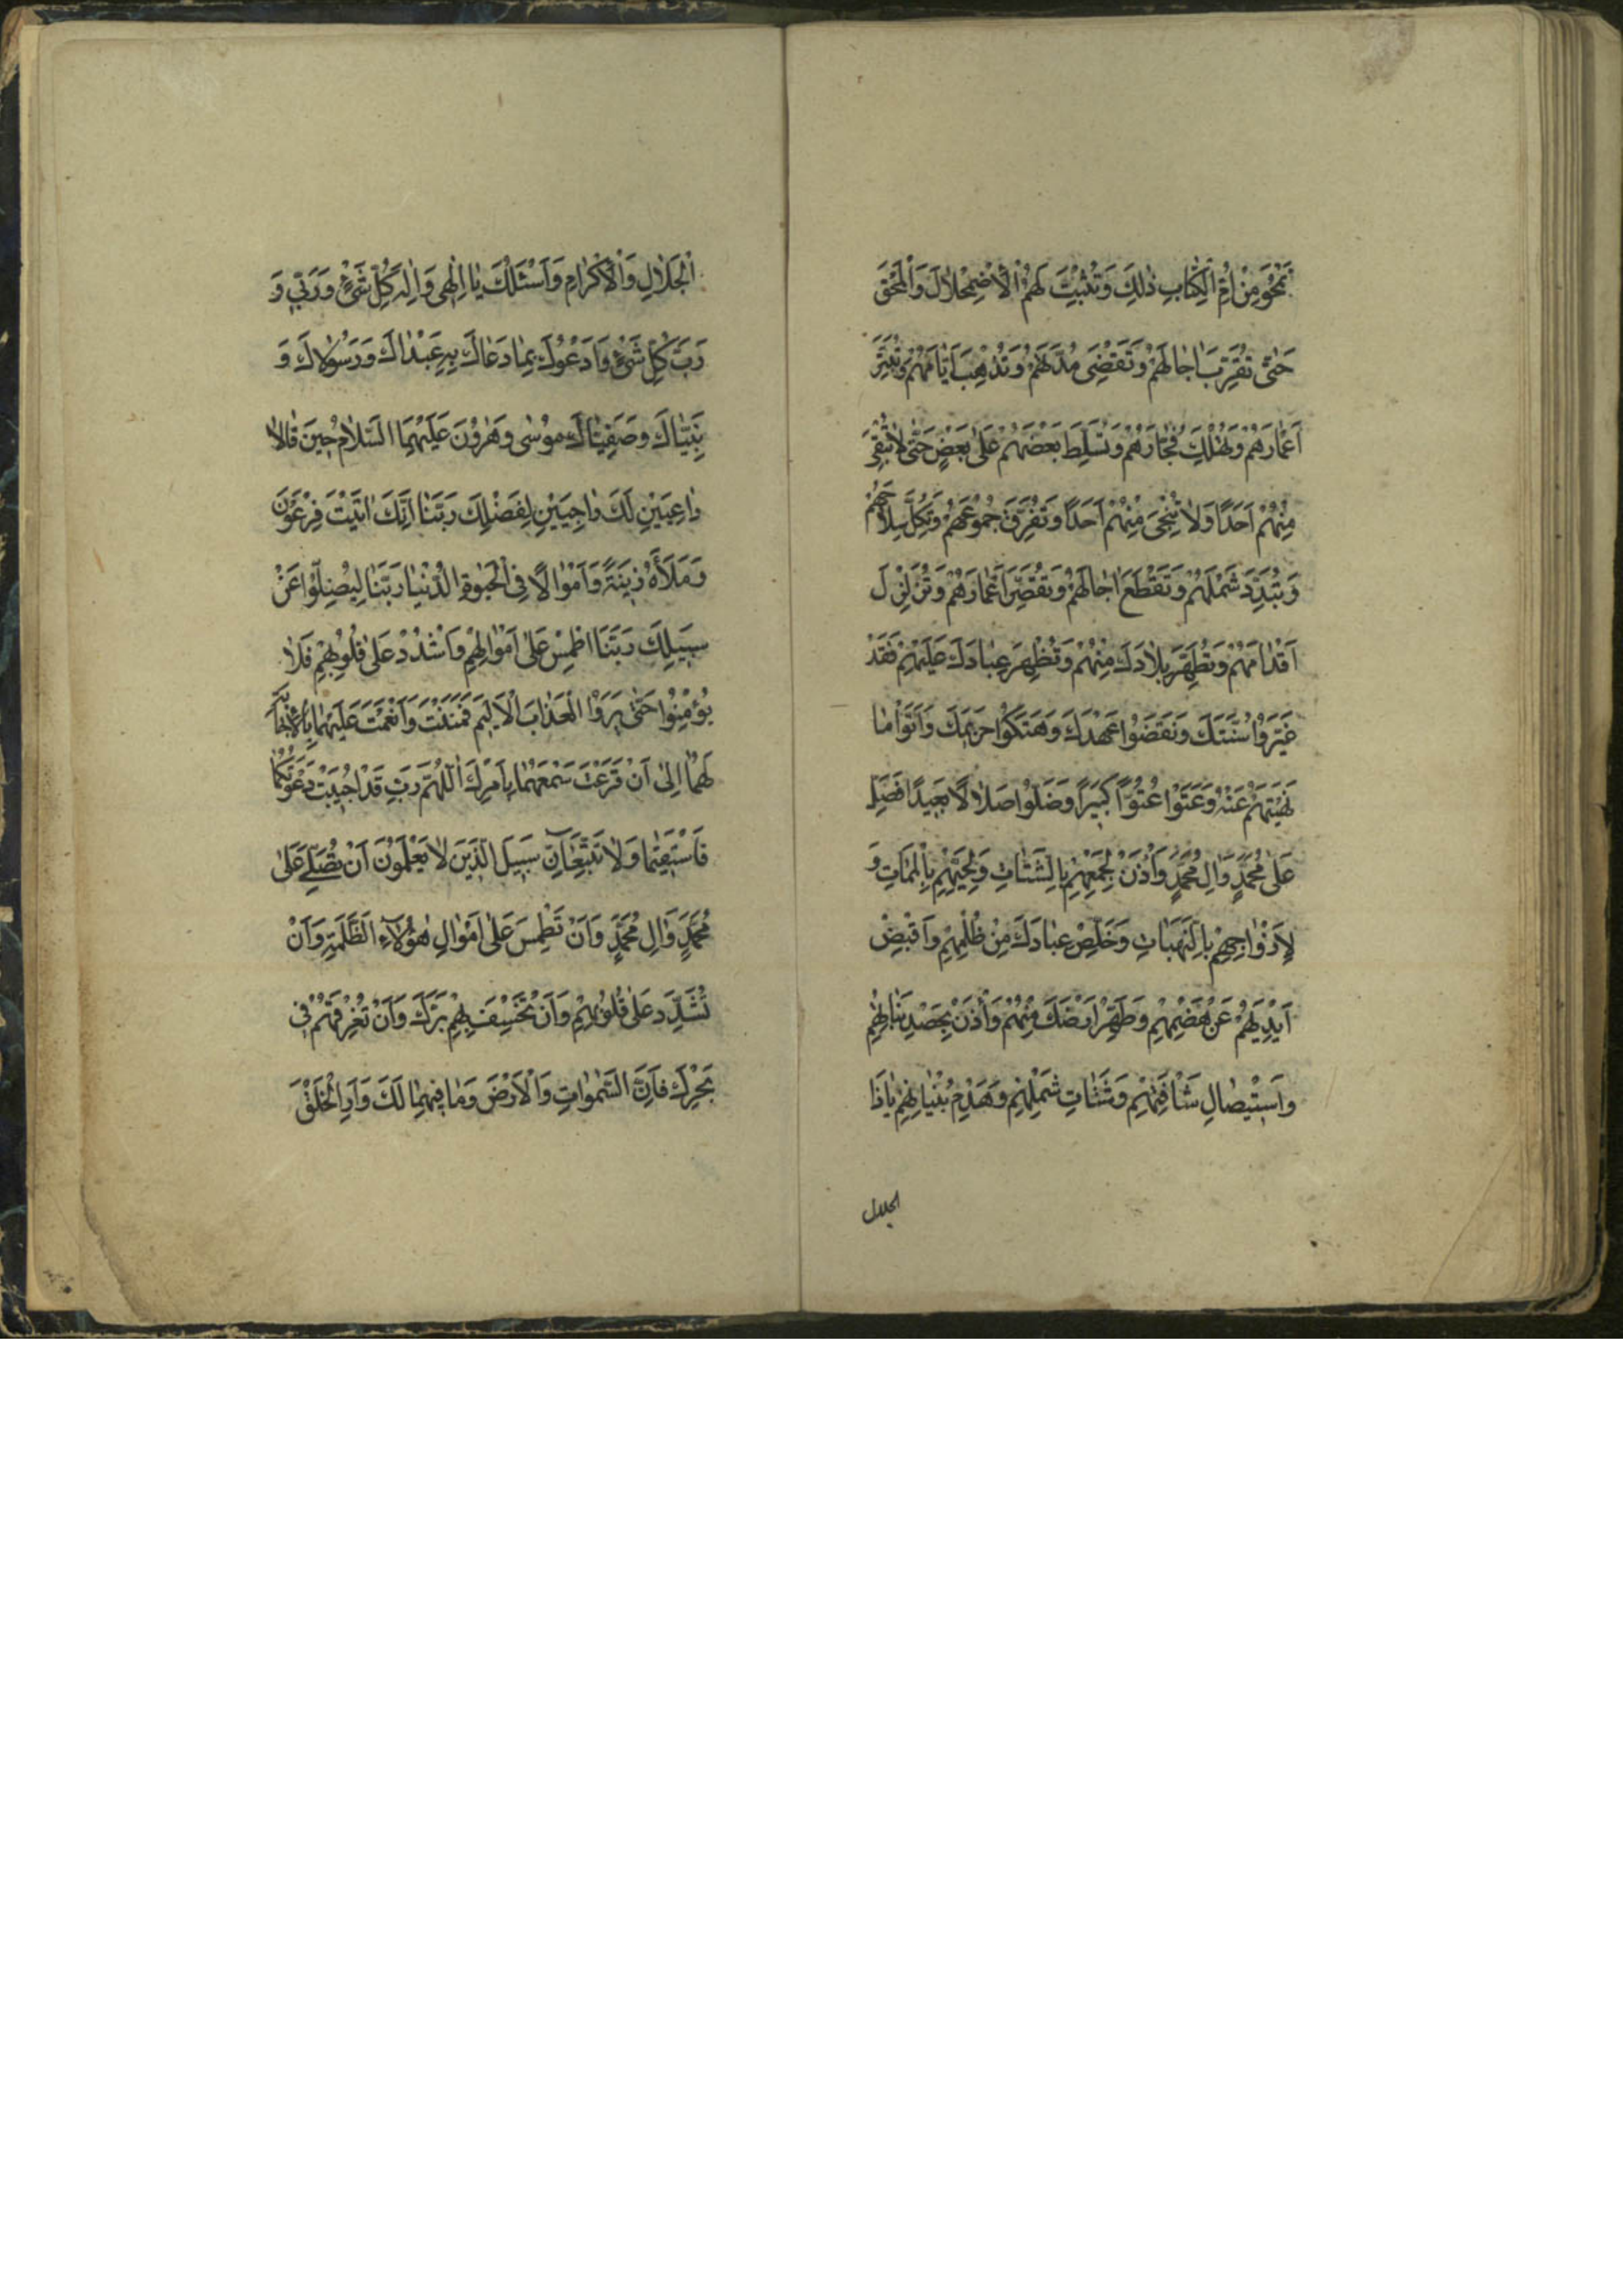 تَمْحُوَ مِنْ اُمِّ الْكِتٰابِ ذٰلِكَ وَتُثْبِتَ لَهُمُ الْاِضْمِحْلٰالَ وَالْمَحْقَ
حَتّٰى تُقَرِّبَ اٰجٰالَهُمْ وَتَقْضِىَ مُدَّتَهُمْ وَتُذْهِبَ اَيّٰامَهُمْ وَتُبَتِّرَ
اَعْمٰارَهُمْ وَتُهْلِكَ فُجّٰارَهُمْ وَتُسَلِّطَ بَعْضَهُمْ عَلٰى بَعْضٍ حَتّٰى لٰا تُبْقِىَ
مِنْهُمْ اَحَدًا وَلٰا تُنْجِىَ مِنْهُمْ اَحَدًا وَتُفَرِّقَ جُمُوعَهُمْ وَتُكِلَّ سِلٰاحَهُمْ
وَتُبَدِّدَ شَمْلَهُمْ وَتَقْطَعَ اٰجٰالَهُمْ وَتُقَصِّرَ اَعْمٰارَهُمْ وَتُزَلْزِلَ
اَقْدٰامَهُمْ وَتُطَهِّرَ بِلٰادَكَ مِنْهُمْ وَتُظْهِرَ عِبٰادَكَ عَلَيْهِمْ فَقَدْ
غَيَّرُوا سُنَّتَكَ وَنَقَضُوا عَهْدَكَ وَهَتَكُوا حَرِيمَكَ وَاَتَوْا مٰا
نَهَيْتَهُمْ عَنْهُ وَعَتَوْا عُتُوًّا كَبِيرًا وَضَلُّوا ضَلٰالًا بَعِيدًا فَصَلِّ
عَلٰى مُحَمَّدٍ وَاٰلِ مُحَمَّدٍ وَأْذَنْ لِجَمْعِهِمْ بِالشَّتٰاتِ وَلِحَيِّهِمْ بِالْمَمٰاتِ وَ
لِاَزْوٰاجِهِمْ بِالنَّهَبٰاتِ وَخَلِّصْ عِبٰادَكَ مِنْ ظُلْمِهِمْ وَاقْبِضْ
اَيْدِيَهُمْ عَنْ هَضْمِهِمْ وَطَهِّرْ اَرْضَكَ مِنْهُمْ وَأْذَنْ بِحَصْدِ نَبٰاتِهِمْ
وَاسْتِيصٰالِ شَأْفَتِهِمْ وَشَتٰاتِ شَمْلِهِمْ وَهَدْمِ بُنْيٰانِهِمْ يٰا ذَا
الجلال
الْجَلٰالِ وَالْاِكْرٰامِ وَاَسْئَلُكَ يٰا اِلٰهِى وَاِلٰهَ كُلِّ شَىْءٍ وَرَبِّى وَ
رَبَّ كُلِّ شَىْءٍ وَاَدْعُوكَ بِمٰا دَعٰاكَ بِهِ عَبْدٰاكَ وَرَسُولٰاكَ وَ
نَبِيّٰاكَ وَصَفِيّٰاكَ مُوسٰى وَهٰرُونَ عَلَيْهِمَا السَّلٰامُ حِينَ قٰالٰا
دٰاعِيَيْنِ لَكَ رٰاجِيَيْنِ لِفَضْلِكَ رَبَّنٰا اِنَّكَ اٰتَيْتَ فِرْعَوْنَ
وَمَلَأَهُ زِينَةً وَاَمْوٰالًا فِى الْحَيٰوةِ الدُّنْيٰا رَبَّنٰا لِيُضِلُّوا عَنْ
سَبِيلِكَ رَبَّنَا اطْمِسْ عَلٰى اَمْوٰالِهِمْ وَاشْدُدْ عَلٰى قُلُوبِهِمْ فَلٰا
يُؤْمِنُوا حَتّٰى يَرَوُا الْعَذٰابَ الْاَلِيمَ فَمَنَنْتَ وَاَنْعَمْتَ عَلَيْهِمٰا بِالْاِجٰابَةِ
لَهُمٰا اِلٰى اَنْ قَرَعْتَ سَمْعَهُمٰا بِاَمْرِكَ اَللّٰهُمَّ رَبِّ قَدْ اُجِيبَتْ دَعْوَتُكُمٰا
فَاسْتَقِيمٰا وَلٰا تَتَّبِعٰانِّ سَبِيلَ الَّذِينَ لٰا يَعْلَمُونَ اَنْ تُصَلِّىَ عَلٰى
مُحَمَّدٍ وَاٰلِ مُحَمَّدٍ وَاَنْ تَطْمِسَ عَلٰى اَمْوٰالِ هٰؤُلٰاءِ الظَّلَمَةِ وَاَنْ
تُشَدِّدَ عَلٰى قُلُوبِهِمْ وَاَنْ تَخْسِفَ بِهِمْ بَرَّكَ وَاَنْ تُغْرِقَهُمْ فِى
بَحْرِكَ فَاِنَّ السَّمٰوٰاتِ وَالْاَرْضَ وَمٰا فِيهِمٰا لَكَ وَاَرِ الْخَلْقَ